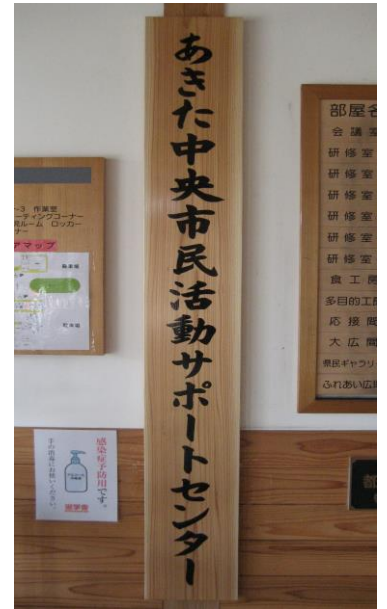 あきた中央市民活動サポートセンター
部屋名
会議室
研修室
研修室
研修室
研修室
研修室
研修室
食工房
多目的工房
応接間
大広間
県民ギャラリー
ふれあい広場
作業室
ミーティングコーナー
ロッカー
アマップ
感染症予防用です。
手の消毒にお使いください。